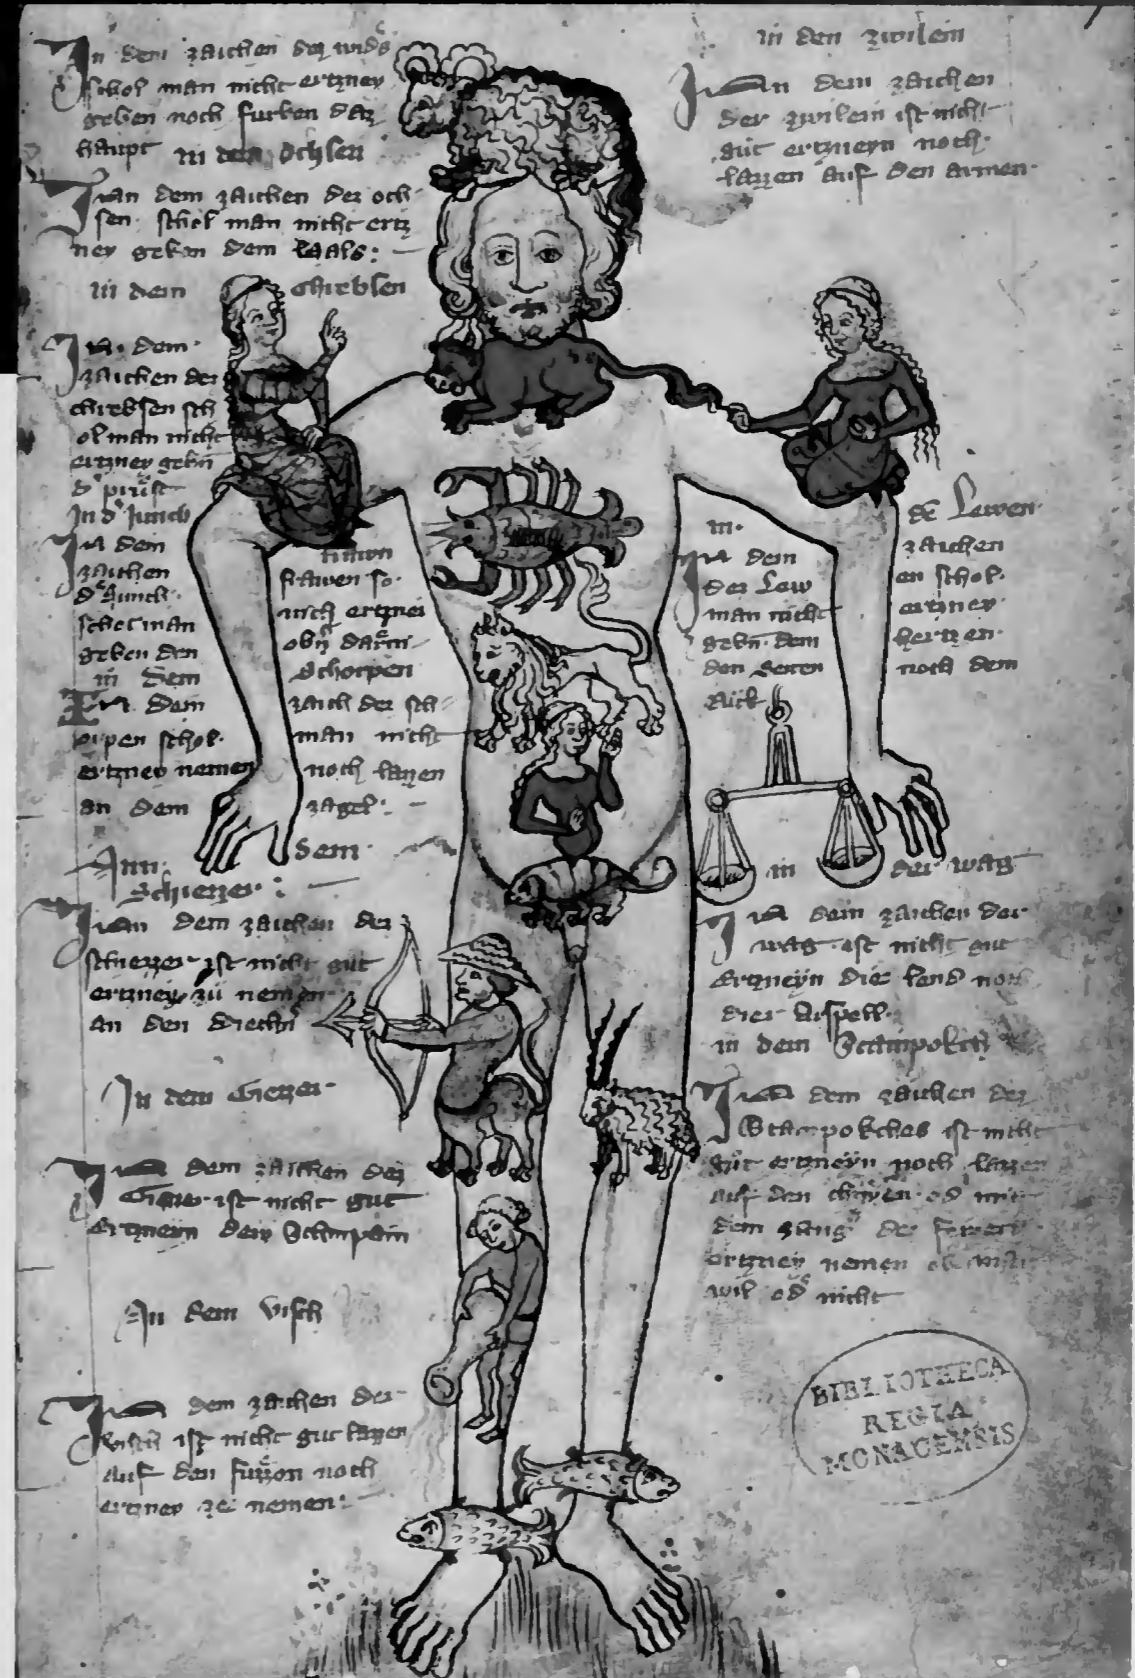 In dem zaichen dez wids
schol man nicht ertzney
geben noch furben daz
haupt in den Ochsen
In an dem zaichen der och
sen schol man nicht ertz
ney geben dem hals:
in dem Chrebsen
In dem
zaichen der
chrebsen sch
ol man nicht
ertzney gebn
d prüst
In d Junck
frawn
In dem
zaichen
d Junck
frawen so
schol man
nich ertznei
geben den
obn därm
in dem
Schorpen
In dem
zaich der sch
orpen schol
man nicht
ertzney nemen
noch lazzen
an dem
zagel:
Inn dem
Schiezzer:
In an dem zaichen der
schiezzer ist nicht gut
ertzney zu nemen
an den diechn
In dem Giezzer
In dem zaichen dez
Giezzer ist nicht gut
ertzneyn dem Schinpain
In dem visch
In dem zaichen der
visch ist nicht gut lazzen
auf den füzzon noch
ertzney ze nemen:
in den zwilein
In an dem zaichen
der zwilein ist nicht
güt ertzneyn noch
lazzen auf den armen
in de Lewen
In dem zaichen
der Lew en schol
man nicht ertzney
gebn dem hertzen
den seiten noch dem
Rück
in der wag
In dem zaichen der
wag ist nicht gut
Ertzneyn die lend noch
dier
in dem Stainpokch
In dem zaichen dez
Stainpokches ist nicht
gůt ertzneyn noch lazzen
auf den chnyen od mit
dem
ertzney nemen ob man
wil od nicht
BIBLIOTHECA
REGIA
MONACENSIS